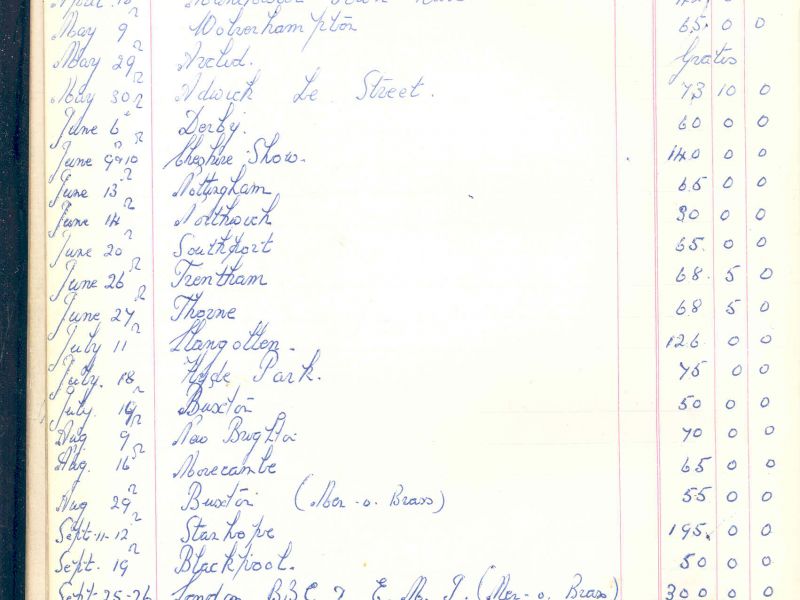 May 9 Wolverhampton 65 0 0
May 29 Arclid. Gratis
May 30 Adwick Le Street. 73 10 0
June 6 Derby. 60 0 0
June 9 & 10 Cheshire Show. 140 0 0
June 13 Nottingham 65 0 0
June 14 Northwich 30 0 0
June 20 Southport 65. 0 0
June 26 Trentham 68. 5 0
June 27 Thorne 68 5 0
July 11 Llangollen - 126 0 0
July. 18 Hyde Park. 75 0 0
July. 19 Buxton 50 0 0
Aug. 9 New Brighton 70 0 0
Aug. 16 Morecambe 65 0 0
Aug 29 Buxton (Men-o. Brass) 55 0 0
Sept. 11-12 Stanhope 195. 0 0
Sept. 19 Blackpool. 50 0 0
Sept. 25-26 London BBC & E. M. I. (Men-o. Brass) 300 0 0